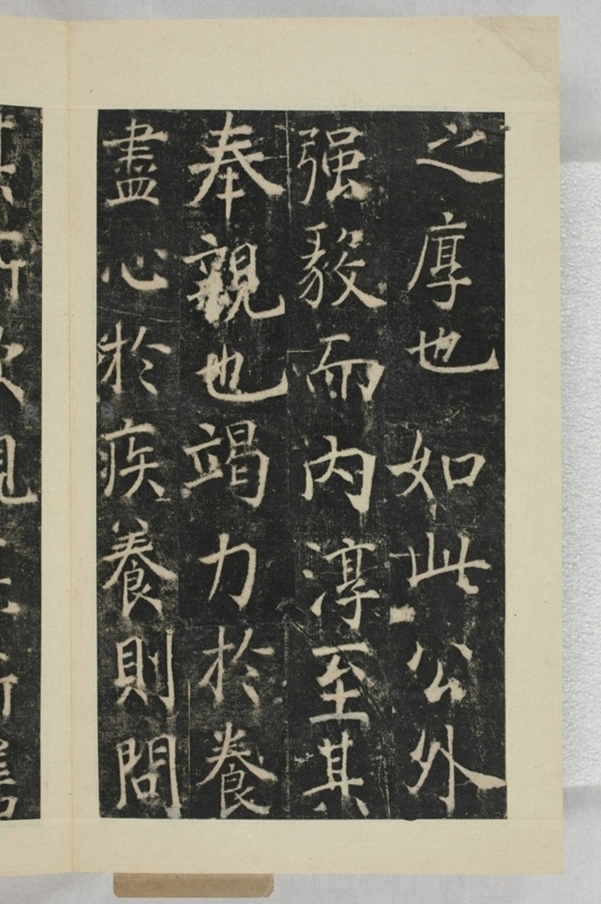 之厚也如此公外
强毅而内淳至其
奉親也竭力於養
盡心於疾養則問